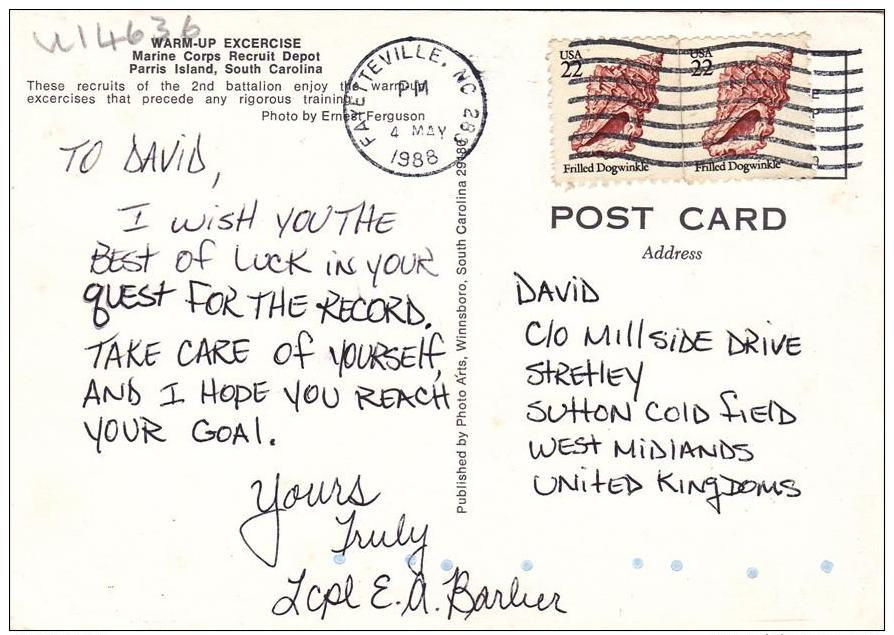 U14636
WARM-UP EXCERCISE
Marine Corps Recruit Depot
Parris Island, South Carolina
These recruits of the 2nd battalion enjoy the warm-up
excercises that precede any rigorous training.
Photo by Ernest Ferguson
FAYETTEVILLE, NC 283
PM
4 MAY
1988
USA
22
Frilled Dogwinkle
USA
22
Frilled Dogwinkle
TO DAVID,
I WISH YOU THE
BEST OF LUCK IN YOUR
QUEST FOR THE RECORD.
TAKE CARE OF YOURSELF,
AND I HOPE YOU REACH
YOUR GOAL.
Yours
Truly
Lcpl E.A. Barber
Published by Photo Arts, Winnsboro, South Carolina 29180
POST CARD
Address
DAVID
C/O MILLSIDE DRIVE
STRETLEY
SUTTON COLD FIELD
WEST MIDLANDS
UNITED KINGDOMS